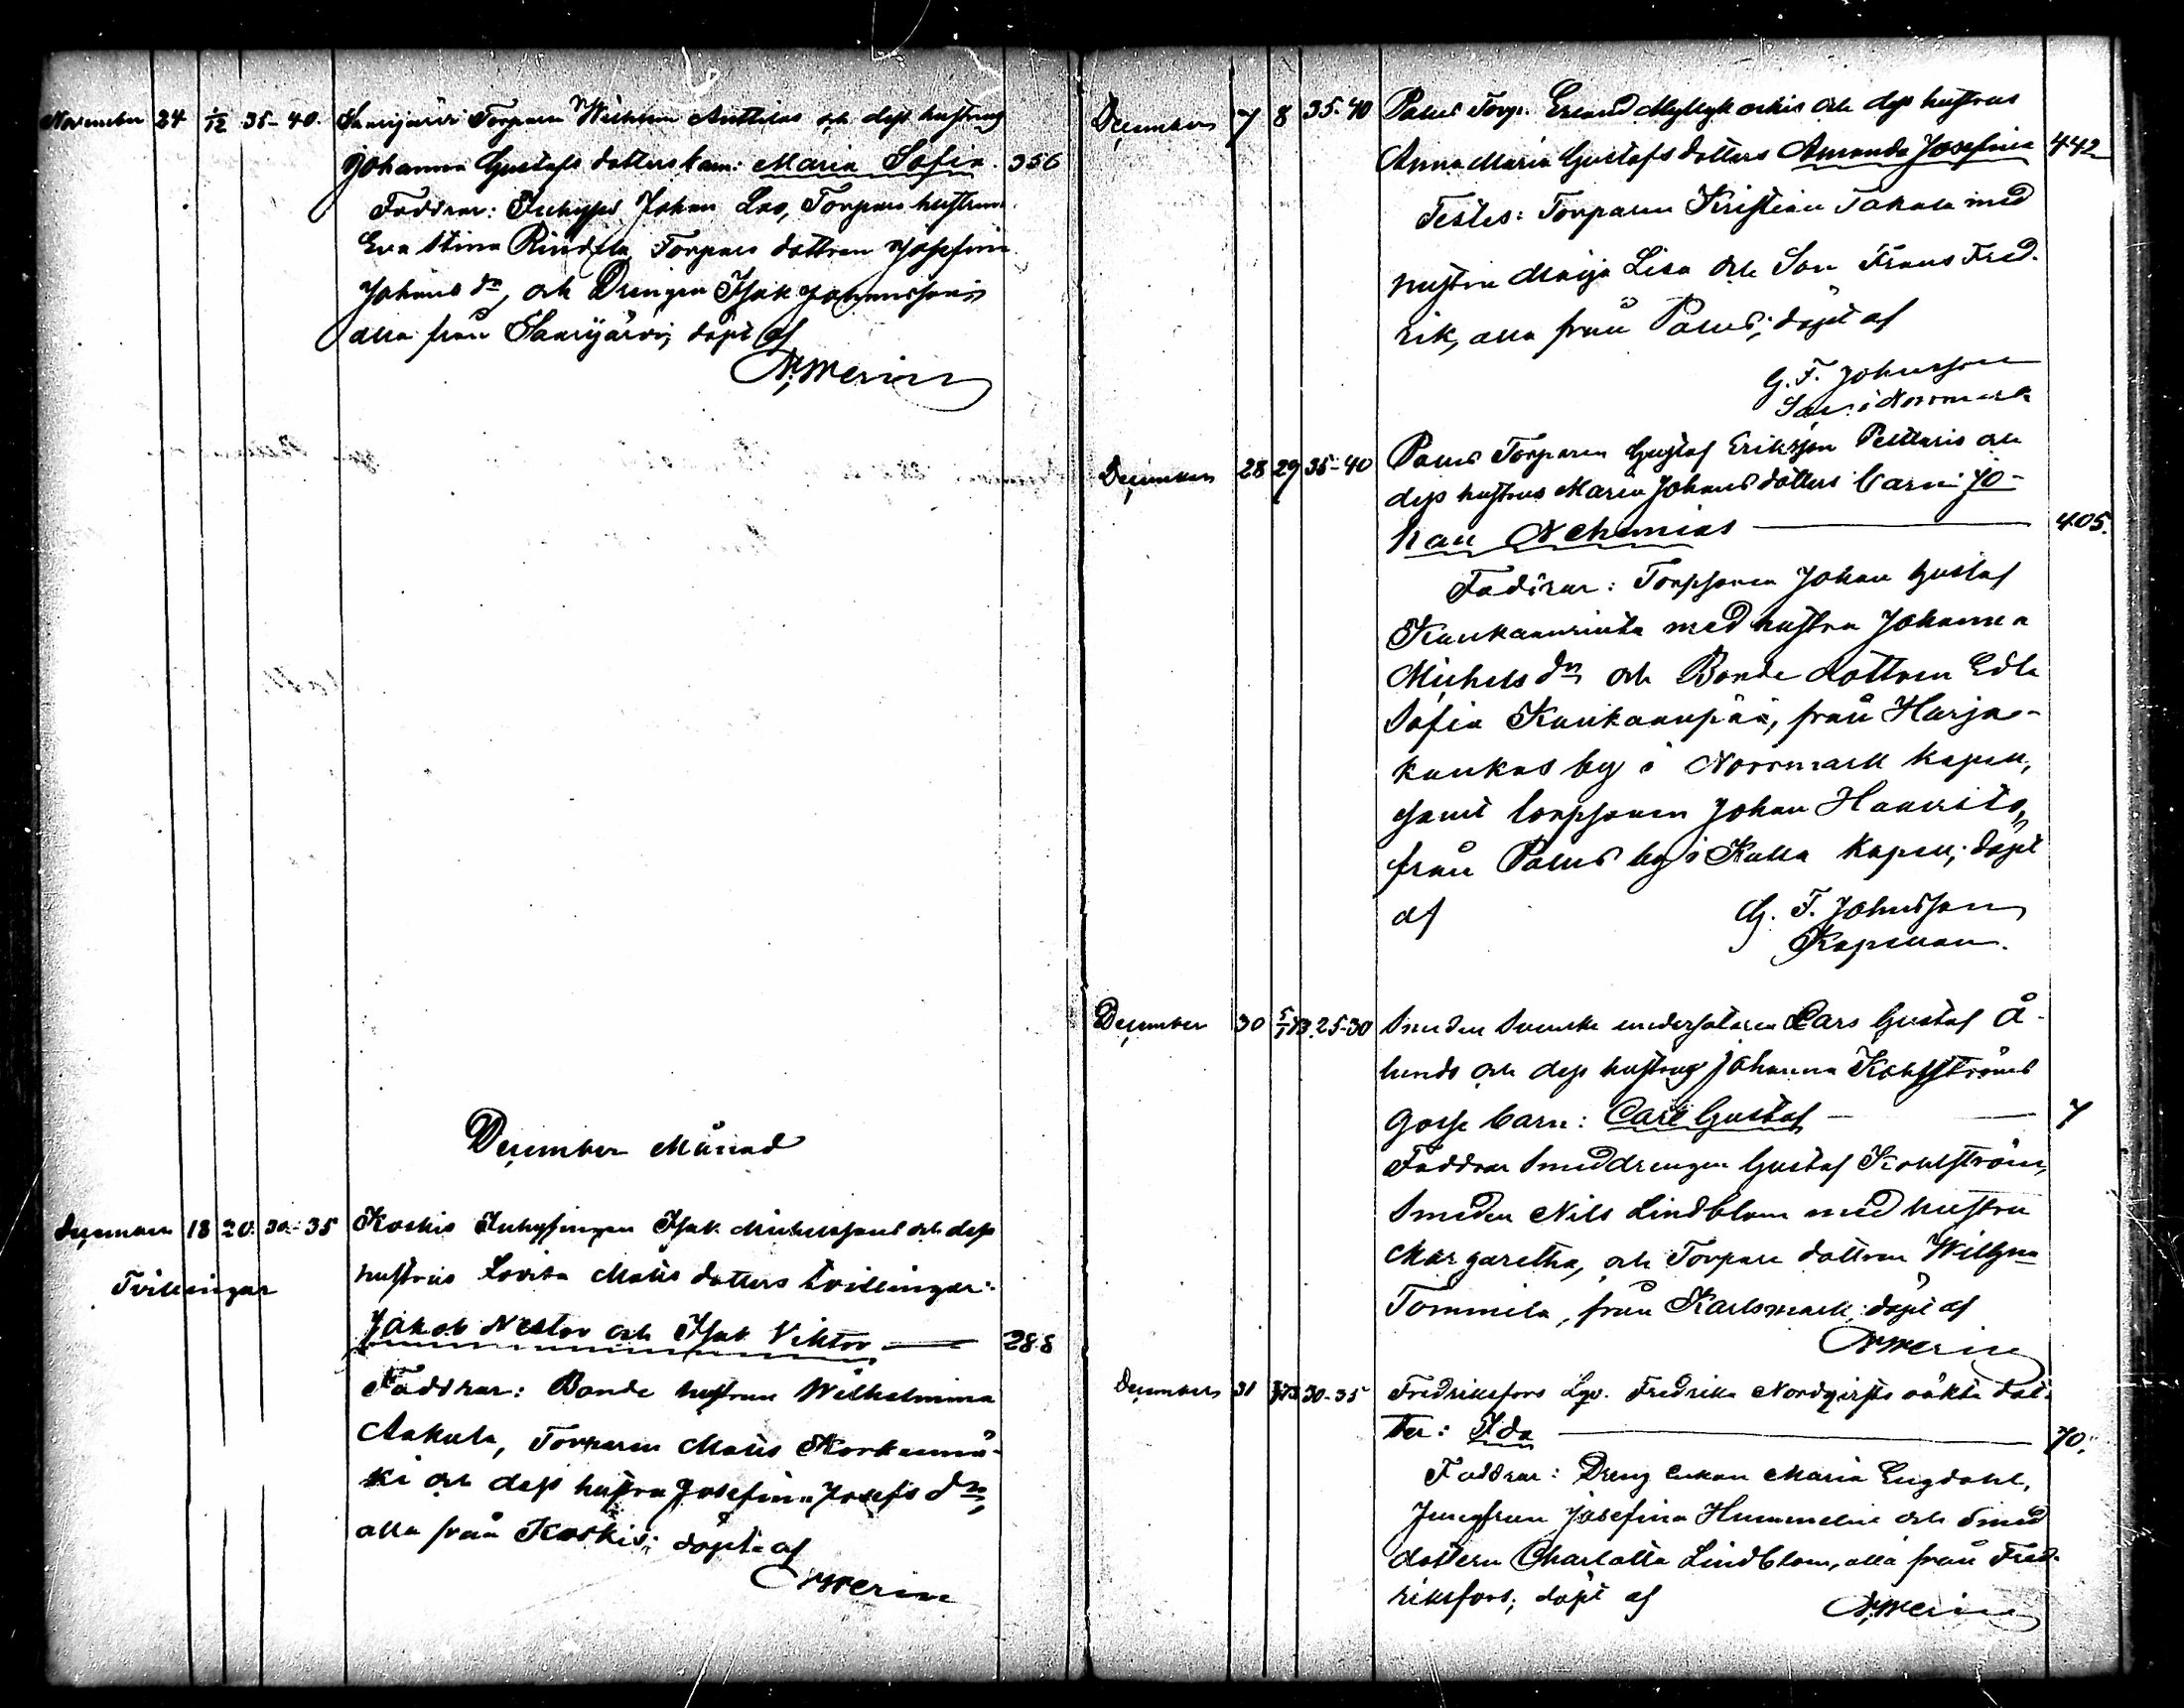 November 24 1/12 35-40. Saarijärvi Torparen Wilhelm Anttilas och dess hustrus
Johanna Gustafs dotters barn: Maria Sofia. 356
Faddrar: Inhyses Johan Las, Torpare hustrun
Eva Stina Rindala, Torpare dottren Josefina
Johans dr, och Drengen Isak Johansson
alla från Saarijärvi; döpt af
Merin
December Månad
December 18 20. 30-35 Koskis Inhysingen Isak Michelssons och dess
hustrus Lovisa Matts dotters tvillingar:
Tvillingar
Jakob Nestor och Isak Viktor 288
Faddrar: Bonde hustrun Wilhelmina
Aakula, Torparen Matts Korkeamä-
ki och dess hustru Josefina Josefs dr,
alla från Koskis; döpt af
Merin
December 7 8 35-40 Palus Torp. Erland Myllykoskis och dess hustrus
Anna Maria Gustafs dotters Amanda Josefina 442
Testes: Torparen Kristian Takala med
hustru Maija Lisa och Son Frans Fred-
rik, alla från Palus; döpt af
G. F. Johnsson
Sac. i Norrmark
December 28 29 35-40 Palus Torparen Gustaf Eriksson Peltaris och
dess hustrus Maria Johans dotters barn Jo-
han Nehemias 405.
Faddrar: Torpparen Johan Gustaf
Kankaanrinta med hustru Johanna
Michels dr och Bonde dottren Edla
Sofia Kankaanpää, från Harja-
kankas by i Norrmark kapell,
samt torpparen Johan Haavisto,
från Palus by i Kulla kapell; döpt
af G. F. Johnsson
Kapellan.
December 30 5/1 73. 25-30 Smeden Svenske undersåtaren Lars Gustaf Å-
lunds och dess hustrus Johanna Kohlströms
Gosse barn: Carl Gustaf 7
Faddrar Smeddrengen Gustaf Kohlström,
Smeden Nils Lindblom med hustru
Margaretha, och Torpare dottren Wilhna
Tommila, från Karlsmark; döpt af
Merin
December 31 73 30-35 Fredriksfors Lgv. Fredrika Nordqvists oäkta dot-
ter: Ida 70.
Faddrar: Dreng enkan Maria Engdahl,
Jungfrun Josefina Hummelin och Smed
dottern Charlotta Lindblom, alla från Fred-
riksfors; döpt af Merin